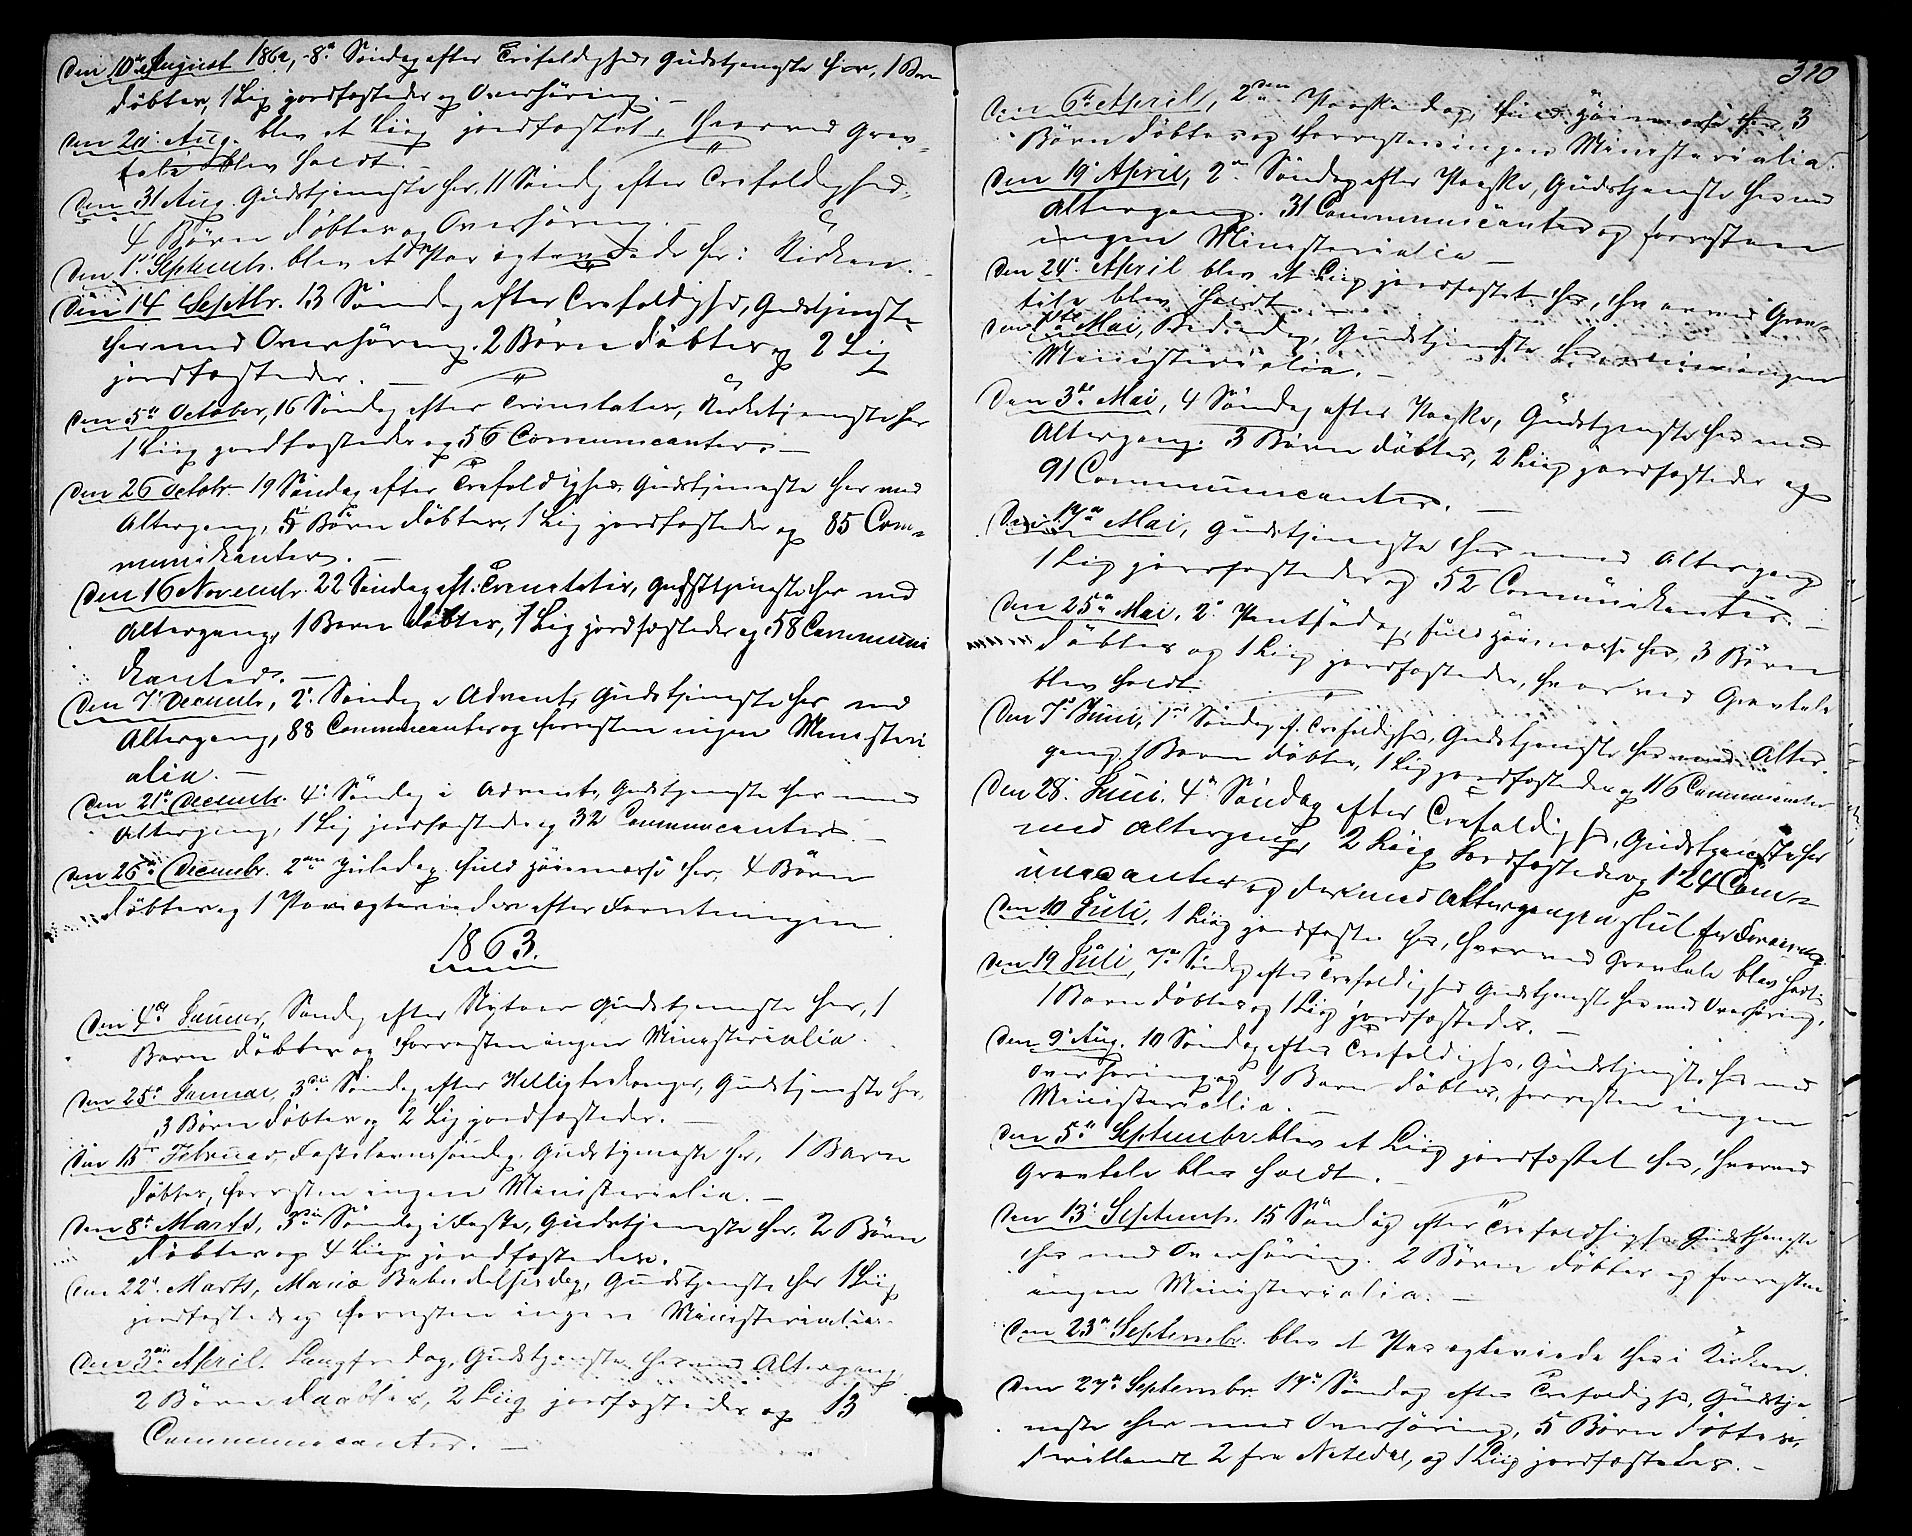 Den 10de August 1862, 8de Søndag efter Trefoldighed, Gudstjeneste her, 1 Barn
døbtes, 1 Lig jordfæstedes og Overhøring. –
Den 20de Aug. blev et Liig jordfæstet, hvorved Grav-
tale blev holdt. –
Den 31 Aug. Gudstjeneste her, 11 Søndag efter Trefoldighed,
4 Børn døbtes og Overhøring. –
Den 1ste Septembr. blev et Par ægteviede her i Kirken. –
Den 14 Septbr. 13 Søndag efter Trefoldighed, Gudstjeneste
her med Overhøring. 2 Børn døbtes og 2 Lig
jordfæstedes. –
Den 5te October, 16 Søndag efter Trinitatis, Kirketjeneste her
1 Liig jordfæstedes og 56 Communicanter. –
Den 26 Octobr. 19 Søndag efter Trefoldighed, Gudstjeneste her med
Altergang, 5 Børn døbtes, 1 Lig jordfæstedes og 85 Com-
munikanter. –
Den 16 Novembr. 22 Søndag eft. Trinitatis, Gudstjeneste her med
Altergang, 1 Barn døbtes, 1 Lig jordfæstedes og 58 Communi
kanter. –
Den 7de Decembr, 2. Søndag i Advent, Gudstjeneste her med
Altergang, 88 Communicanter og forresten ingen Ministeri
alia. –
Den 21de Decembr. 4de Søndag i Advent, Gudstjeneste her med
Altergang, 1 Lig jordfæstedes og 32 Communicanter. –
Den 26de Decembr. 2den Juledag fuld Høimesse her, 4 Børn
døbtes og 1 Par ægteviedes efter Forretningen
1863.
Den 4de Januar, Søndag efter Nytaar Gudstjeneste her, 1
Barn døbtes og forresten ingen Ministerialia.
Den 25de Januar, 3die Søndag efter Helligtrekonger, Gudstjeneste her,
3 Børn døbtes og 2 Lig jordfæstedes. –
Den 15de Februar, Fastelavnssøndag. Gudstjeneste her, 1 Barn
døbtes, forresten ingen Ministerialia. –
Den 8de Marts, 3die Søndag i Faste, Gudstjeneste her, 2 Børn
døbtes og 4 Liig jordfæstedes.
Den 22de Marts, Mariæ Bebudelsesdag, Gudstjeneste her 1 Liig
jordfæstedes og forresten ingen Ministerialia.
Den 3die April. Langfredag, Gudstjeneste her med Altergang
2 Børn daabtes, 2 Liig jordfæstedes og 13
Communicanter. –
320
Den 6te April, 2den Paaskedag, fuld Høimesse her, 3
Børn døbtes og forresten ingen Ministerialia.
Den 19de April, 2den Søndag efter Paaske, Gudstjeneste her med
Altergang. 31 Communicanter og forresten
ingen Ministerialia –
Den 24de April blev et Liig jordfæstet her, hvorved Grav-
tale blev holdt. –
Den 1ste Mai, Bededag, Gudstjeneste her, ingen
Ministerialia. –
Den 3die Mai, 4 Søndag efter Paaske, Gudstjeneste her med
Altergang. 3 Børn døbtes, 2 Liig jordfæstedes og
91 Communicanter. –
Den 17de Mai, Gudstjeneste her med Altergang
1 Lig jordfæstedes og 52 Communikanter. –
Den 25de Mai, 2. Pintsedag, fuld Høimesse her, 3 Børn
døbtes og 1 Liig jordfæstedes, hvorved Gravtale
blev holdt
Den 7de Juni, 1ste Søndag e. Trefoldighed, Gudstjeneste her med Alter-
gang, 1 Barn døbtes, 1 Lig jordfæstedes og 116 Communicanter
Den 28. Juni. 4de Søndag efter Trefoldighed, Gudstjeneste her
med Altergang, 2 Liig jordfæstedes og 124 Com-
municanter og dermed Altergangen slut for
Den 10 Juli, 1 Liig jordfæstet her, hvorved Gravtale blev holdt.
Den 19 Juli, 7de Søndag efter Trefoldighed Gudstjeneste her med Overhøring,
1 Barn døbtes og 1 Liig jordfæstedes. –
Den 9de Aug. 10 Søndag efter Trefoldighed, Gudstjeneste her med
Overhøring og 1 Barn døbtes, forresten ingen
Ministerialia. –
Den 5te Septembr. blev et Liig jordfæstet her, hvorved
Gravtale blev holdt. –
Den 13de Septembr. 15 Søndag efter Trefoldighed Gudstjeneste
her med Overhøring. 2 Børn døbtes og forresten
ingen Ministerialia. –
Den 23de Septembr. blev et Par ægteviede her i Kirken.
Den 27de Septembr. 17de Søndag efter Trefoldighed, Gudstje
neste her med Overhøring, 5 Børn døbtes,
deriblandt 2 fra Nitedal, og 1 Liig jordfæstedes. –